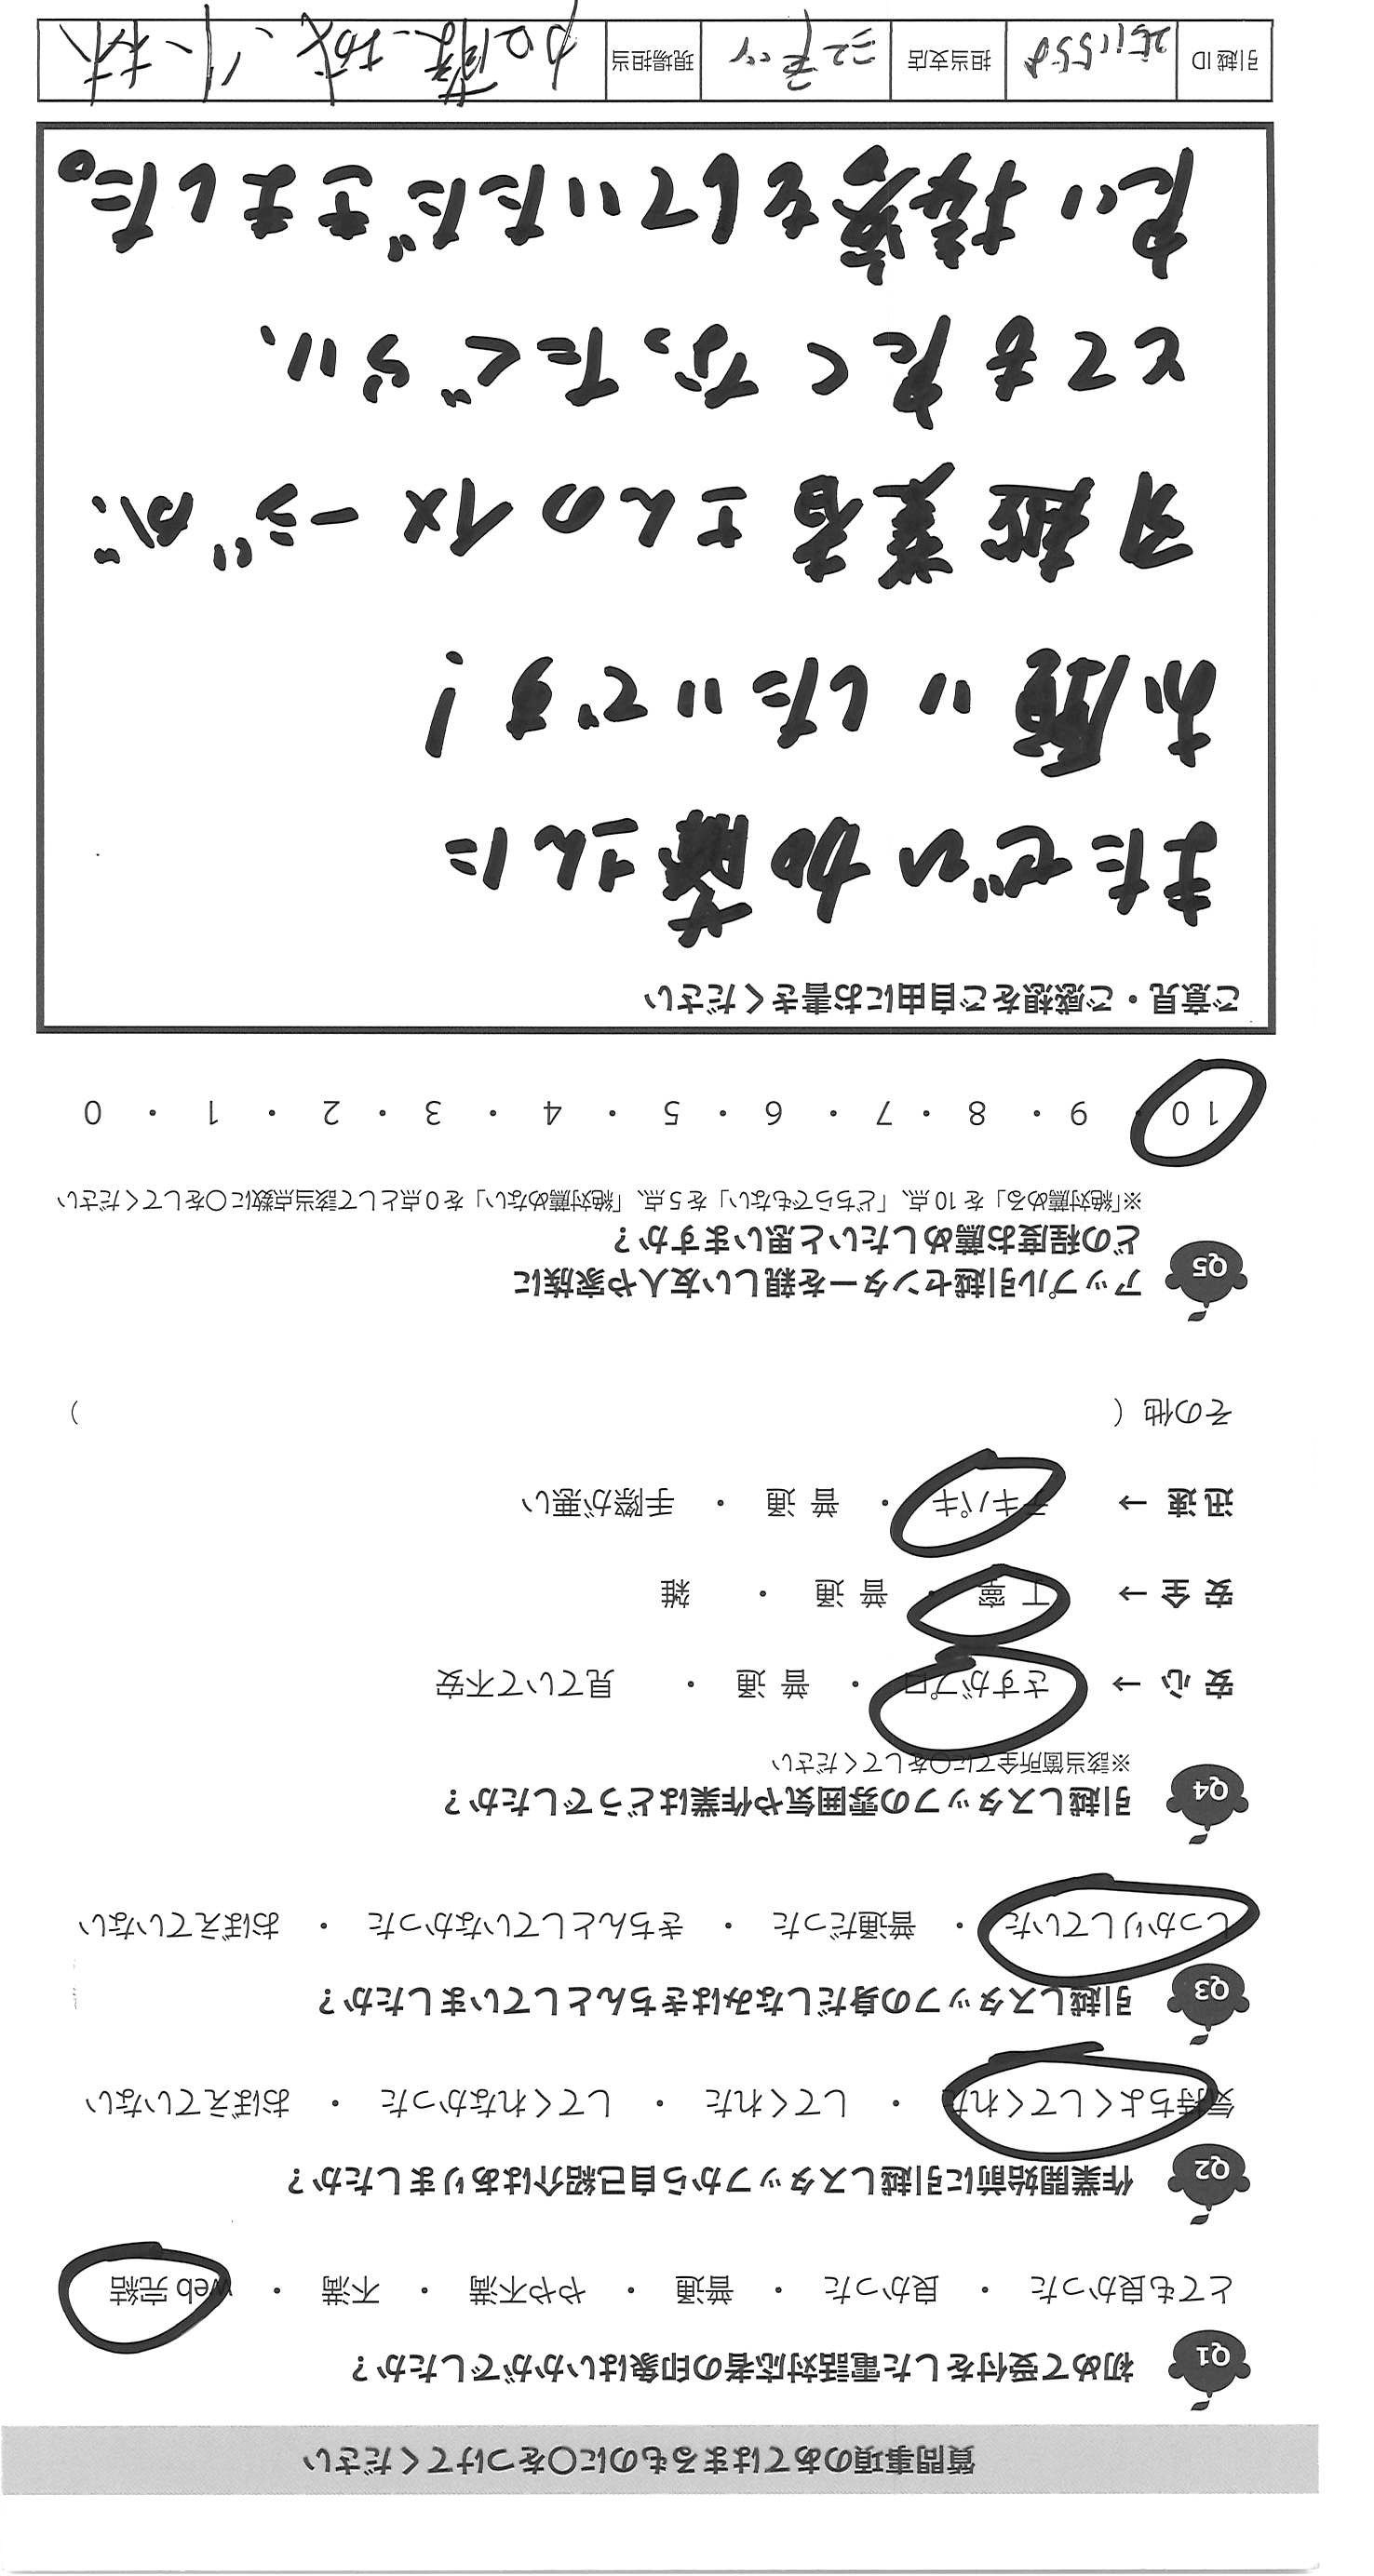 質問事項のあてはまるものに〇をつけてください
Q1 初めて受付をした電話対応者の印象はいかがでしたか？
とても良かった ・ 良かった ・ 普通 ・ やや不満 ・ 不満 ・ web 完結
Q2 作業開始前に引越しスタッフから自己紹介はありましたか？
気持ちよくしてくれた ・ してくれた ・ してくれなかった ・ おぼえていない
Q3 引越しスタッフの身だしなみはきちんとしていましたか？
しっかりしていた ・ 普通だった ・ きちんとしていなかった ・ おぼえていない
Q4 引越しスタッフの雰囲気や作業はどうでしたか？
※該当箇所全てに〇をしてください
安 心 → さすがプロ ・ 普 通 ・ 見ていて不安
安 全 → 丁 寧 ・ 普 通 ・ 雑
迅 速 → テキパキ ・ 普 通 ・ 手際が悪い
その他（ ）
Q5 アップル引越センターを親しい友人や家族に
どの程度お薦めしたいと思いますか？
※「絶対薦める」を 10 点、「どちらでもない」を 5 点、「絶対薦めない」を 0 点として該当点数に〇をしてください
10 ・ 9 ・ 8 ・ 7 ・ 6 ・ 5 ・ 4 ・ 3 ・ 2 ・ 1 ・ 0
ご意見・ご感想をご自由にお書きください
またぜひ加藤さんに
お願いしたいです！
引越業者さんのイメージが、
とても良くなったぐらい、
良い接客をしていただきました。
引越 ID 担当支店 現場担当 加藤、